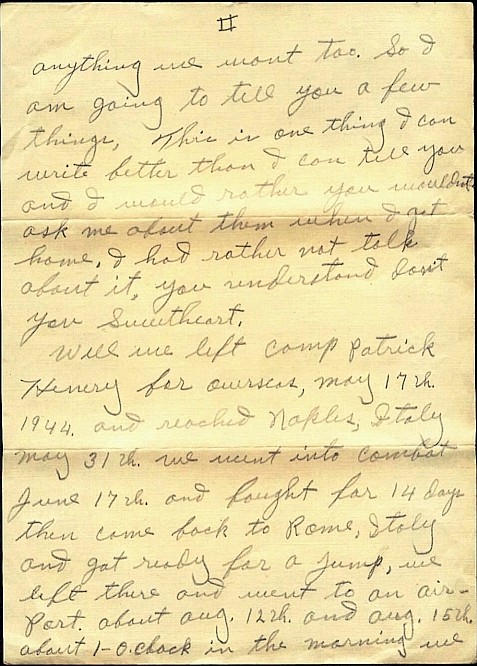 II
anything we want too. So I
am going to tell you a few
things, This is one thing I can
write better than I can tell you
and I would rather you wouldnt
ask me about them when I get
home. I had rather not talk
about it, you understand don't
you Sweetheart.
Will we left camp Patrick
Henery for overseas, may 17th.
1944. and reached Naples, Italy
may 31th. we went into combat
June 17th. and fought for 14 days
then come back to Rome, Italy
and got ready for a jump, we
left there and went to an air-
Port. about aug. 12th. and aug. 15th.
about 1-O.clock in the morning we